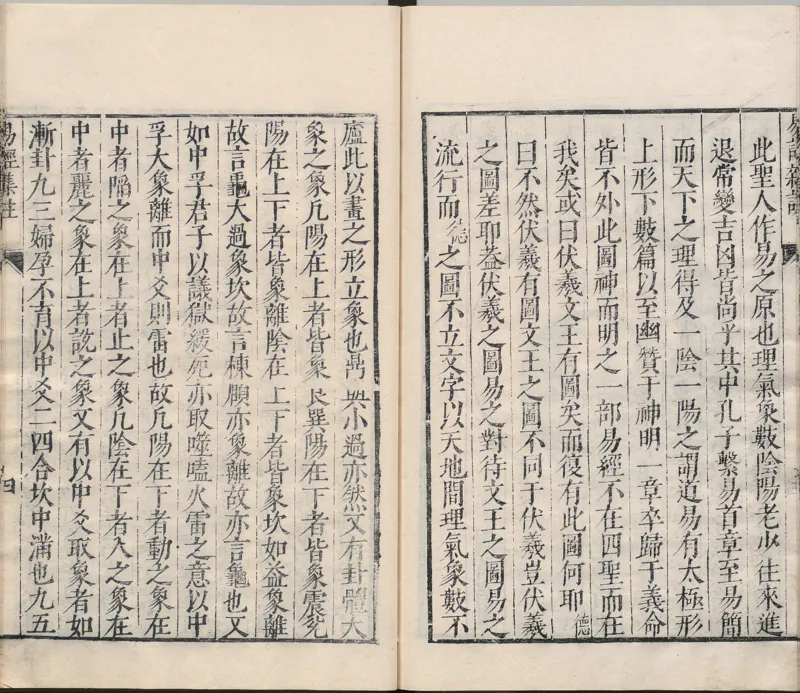 此聖人作易之原也理氣象數陰陽老少往來進
退常變吉凶皆尚乎其中孔子繫易首章至易簡
而天下之理得及一陰一陽之謂道易有太極形
上形下數篇以至幽贊于神明一章卒歸于義命
皆不外此圖神而明之一部易經不在四聖而在
我矣或曰伏羲文王有圖矣而復有此圖何耶德
曰不然伏羲有圖文王之圖不同于伏羲豈伏羲
之圖差耶蓋伏羲之圖易之對待文王之圖易之
流行而德之圖不立文字以天地間理氣象數不
廬此以畫之形立象也鼎與小過亦然又有卦體大
象之象凡陽在上者皆象艮巽陽在下者皆象震兌
陽在上下者皆象離陰在上下者皆象坎如益象離
故言龜大過象坎故言棟頤亦象離故亦言龜也又
如中孚君子以議獄緩死亦取噬嗑火雷之意以中
孚大象離而中爻則雷也故凡陽在下者動之象在
中者陷之象在上者止之象凡陰在下者入之象在
中者麗之象在上者說之象又有以中爻取象者如
漸卦九三婦孕不有以中爻二四合坎中滿也九五
易經集註
四